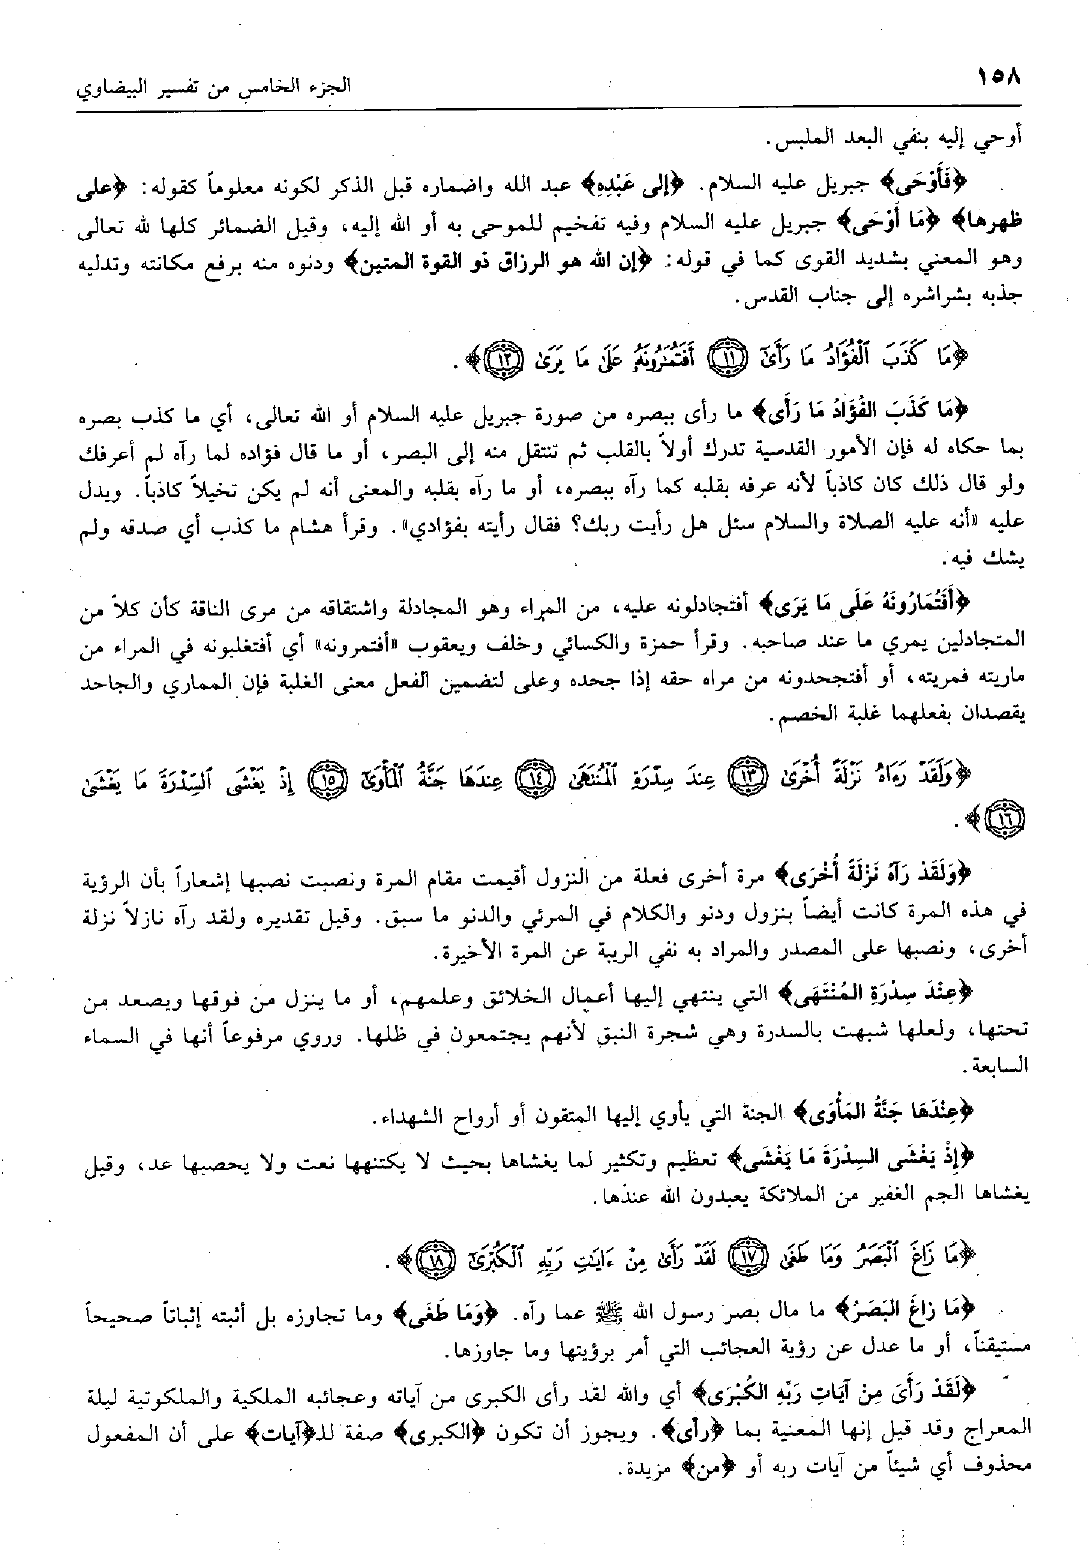 ١٥٨
الجزء الخامس من تفسير البيضاوي
أوحي إليه بنفي البعد الملبس.
﴿فَأَوْحَى﴾ جبريل عليه السلام. ﴿إلى عَبْدِهِ﴾ عبد الله واضماره قبل الذكر لكونه معلوماً كقوله: ﴿على
ظهرها﴾ ﴿مَا أَوْحَى﴾ جبريل عليه السلام وفيه تفخيم للموحى به أو الله إليه، وقيل الضمائر كلها لله تعالى
وهو المعني بشديد القوى كما في قوله: ﴿إن الله هو الرزاق ذو القوة المتين﴾ ودنوه منه برفع مكانته وتدليه
جذبه بشراشره إلى جناب القدس.
﴿مَا كَذَبَ ٱلْفُؤَادُ مَا رَأَىٰٓ ﴿١١﴾ أَفَتُمَٰرُونَهُۥ عَلَىٰ مَا يَرَىٰ ﴿١٢﴾﴾.
﴿مَا كَذَبَ الفُؤَادُ مَا رَأَى﴾ ما رأى ببصره من صورة جبريل عليه السلام أو الله تعالى، أي ما كذب بصره
بما حكاه له فإن الأمور القدسية تدرك أولاً بالقلب ثم تنتقل منه إلى البصر، أو ما قال فؤاده لما رآه لم أعرفك
ولو قال ذلك كان كاذباً لأنه عرفه بقلبه كما رآه ببصره، أو ما رآه بقلبه والمعنى أنه لم يكن تخيلاً كاذباً. ويدل
عليه «أنه عليه الصلاة والسلام سئل هل رأيت ربك؟ فقال رأيته بفؤادي». وقرأ هشام ما كذب أي صدقه ولم
يشك فيه.
﴿أَفَتُمَارُونَهُ عَلَى مَا يَرَى﴾ أفتجادلونه عليه، من المراء وهو المجادلة واشتقاقه من مرى الناقة كأن كلاً من
المتجادلين يمري ما عند صاحبه. وقرأ حمزة والكسائي وخلف ويعقوب «أفتمرونه» أي أفتغلبونه في المراء من
ماريته فمريته، أو أفتجحدونه من مراه حقه إذا جحده وعلى لتضمين الفعل معنى الغلبة فإن المماري والجاحد
يقصدان بفعلهما غلبة الخصم.
﴿وَلَقَدْ رَءَاهُ نَزْلَةً أُخْرَىٰ ﴿١٣﴾ عِندَ سِدْرَةِ ٱلْمُنتَهَىٰ ﴿١٤﴾ عِندَهَا جَنَّةُ ٱلْمَأْوَىٰٓ ﴿١٥﴾ إِذْ يَغْشَى ٱلسِّدْرَةَ مَا يَغْشَىٰ
﴿١٦﴾﴾.
﴿وَلَقَدْ رَآهُ نَزْلَةً أُخْرَى﴾ مرة أخرى فعلة من النزول أقيمت مقام المرة ونصبت نصبها إشعاراً بأن الرؤية
في هذه المرة كانت أيضاً بنزول ودنو والكلام في المرئي والدنو ما سبق. وقيل تقديره ولقد رآه نازلاً نزلة
أخرى، ونصبها على المصدر والمراد به نفي الريبة عن المرة الأخيرة.
﴿عِنْدَ سِدْرَةِ المُنْتَهَى﴾ التي ينتهي إليها أعمال الخلائق وعلمهم، أو ما ينزل من فوقها ويصعد من
تحتها، ولعلها شبهت بالسدرة وهي شجرة النبق لأنهم يجتمعون في ظلها. وروي مرفوعاً أنها في السماء
السابعة.
﴿عِنْدَهَا جَنَّةُ المَأْوَى﴾ الجنة التي يأوي إليها المتقون أو أرواح الشهداء.
﴿إِذْ يَغْشَى السِدْرَةَ مَا يَغْشَى﴾ تعظيم وتكثير لما يغشاها بحيث لا يكتنهها نعت ولا يحصيها عد، وقيل
يغشاها الجم الغفير من الملائكة يعبدون الله عندها.
﴿مَا زَاغَ ٱلْبَصَرُ وَمَا طَغَىٰ ﴿١٧﴾ لَقَدْ رَأَىٰ مِنْ ءَايَٰتِ رَبِّهِ ٱلْكُبْرَىٰٓ ﴿١٨﴾﴾.
﴿مَا زاغَ البَصَرُ﴾ ما مال بصر رسول الله ﷺ عما رآه. ﴿وَمَا طَغَى﴾ وما تجاوزه بل أثبته إثباتاً صحيحاً
مستيقناً، أو ما عدل عن رؤية العجائب التي أمر برؤيتها وما جاوزها.
﴿لَقَدْ رَأَىَ مِنْ آيَاتِ رَبِّهِ الكُبْرَى﴾ أي والله لقد رأى الكبرى من آياته وعجائبه الملكية والملكوتية ليلة
المعراج وقد قيل إنها المعنية بما ﴿رأى﴾. ويجوز أن تكون ﴿الكبرى﴾ صفة للـ﴿آيات﴾ على أن المفعول
محذوف أي شيئاً من آيات ربه أو ﴿من﴾ مزيدة.